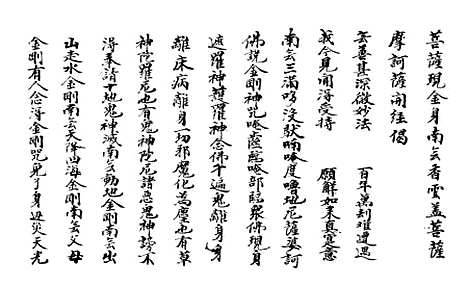 菩薩現金身南無香雲盖菩薩
摩訶薩開経偈
無甚甚深微妙法　百千萬刼难遭遇
我今見聞淂受持　願觧如来真寔意
南無三满哆没馱喃唵度嚕地尾薩婆訶
佛説金剛神咒唵薩唵部臨衆佛現身
遮羅神護羅神念佛千遍鬼離身身
離床病離身一切邪魔化為塵也有草
神陀羅尼也有鬼神陀尼諸惡鬼神謗不
淂奉請十地鬼神滅南無動地金剛南無出
山走水金剛南無天降由海金剛南無父母
金剛有人念淂金剛咒免了身边灾天光